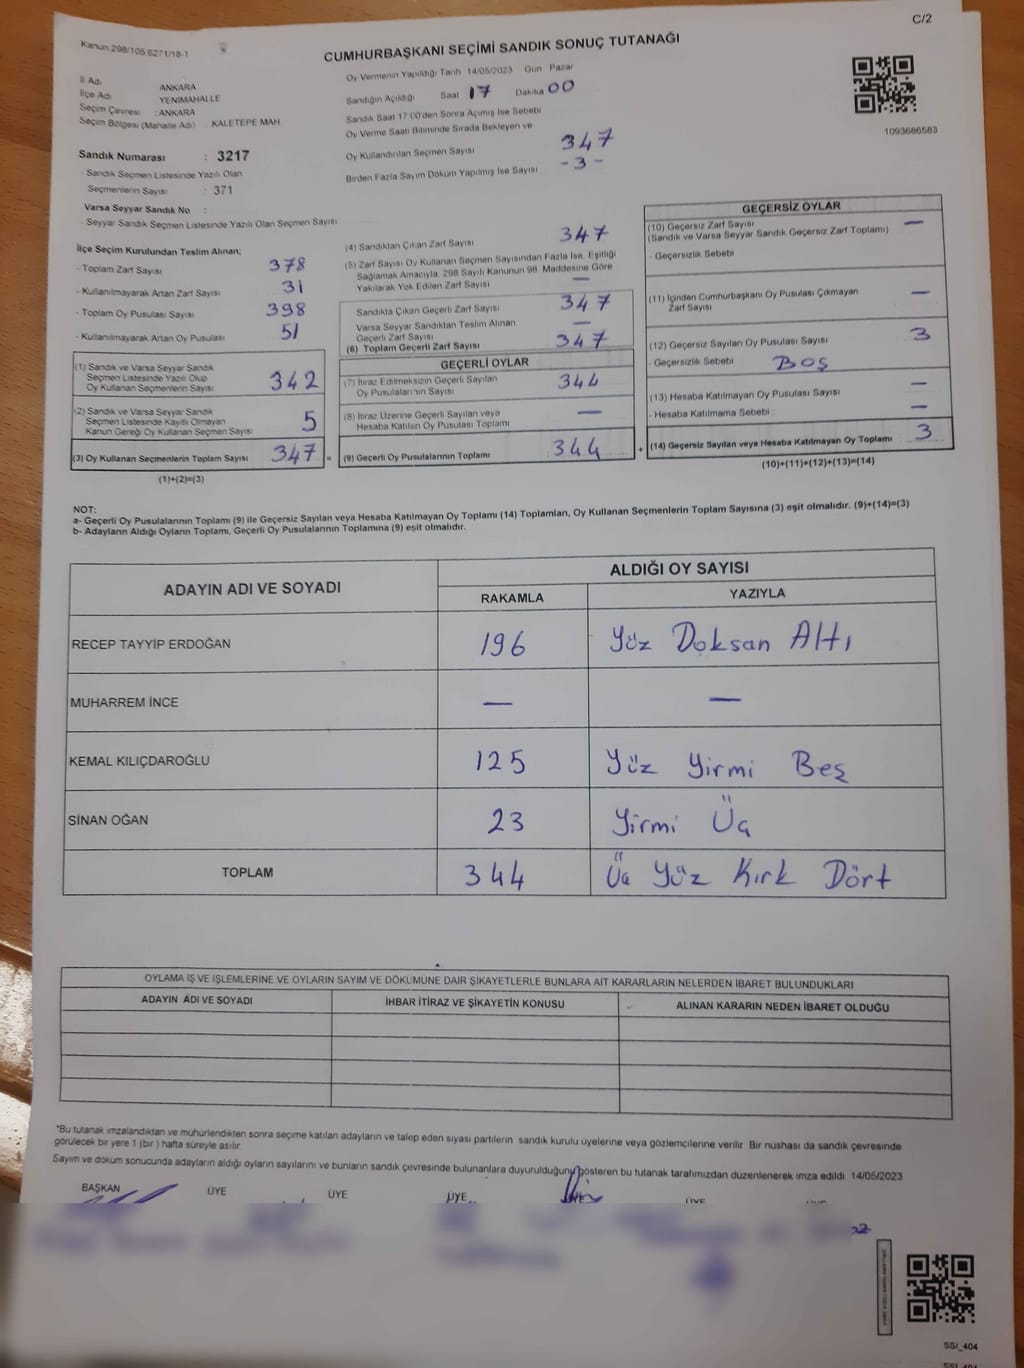 C/2
Kanun:298/105,6271/18-1
CUMHURBAŞKANI SEÇİMİ SANDIK SONUÇ TUTANAĞI
İl Adı : ANKARA
İlçe Adı : YENİMAHALLE
Seçim Çevresi : ANKARA
Seçim Bölgesi (Mahalle Adı) : KALETEPE MAH
Sandık Numarası : 3217
- Sandık Seçmen Listesinde Yazılı Olan
Seçmenlerin Sayısı : 371
Varsa Seyyar Sandık No :
- Seyyar Sandık Seçmen Listesinde Yazılı Olan Seçmen Sayısı
Oy Vermenin Yapıldığı Tarih 14/05/2023 Gün Pazar
Sandığın Açıldığı Saat 17 Dakika 00
Sandık Saat 17:00'den Sonra Açımış İse Sebebi
Oy Verme Saati Bitiminde Sırada Bekleyen ve
Oy Kullandırılan Seçmen Sayısı 347
Birden Fazla Sayım Döküm Yapılmış İse Sayısı - 3 -
1093686583
İlçe Seçim Kurulundan Teslim Alınan;
- Toplam Zarf Sayısı 378
- Kullanılmayarak Artan Zarf Sayısı 31
- Toplam Oy Pusulası Sayısı 398
- Kullanılmayarak Artan Oy Pusulası 51
(1) Sandık ve Varsa Seyyar Sandık
Seçmen Listesinde Yazılı Olup
Oy Kullanan Seçmenlerin Sayısı 342
(2) Sandık ve Varsa Seyyar Sandık
Seçmen Listesinde Kayıtlı Olmayan
Kanun Gereği Oy Kullanan Seçmen Sayısı 5
(3) Oy Kullanan Seçmenlerin Toplam Sayısı 347 =
(1)+(2)=(3)
(4) Sandıktan Çıkan Zarf Sayısı 347
(5) Zarf Sayısı Oy Kullanan Seçmen Sayısından Fazla İse, Eşitliği
Sağlamak Amacıyla, 298 Sayılı Kanunun 98. Maddesine Göre
Yakılarak Yok Edilen Zarf Sayısı —
Sandıkta Çıkan Geçerli Zarf Sayısı 347
Varsa Seyyar Sandıktan Teslim Alınan
Geçerli Zarf Sayısı —
(6) Toplam Geçerli Zarf Sayısı 347
GEÇERLİ OYLAR
(7) İtiraz Edilmeksizin Geçerli Sayılan
Oy Pusulalarının Sayısı 344
(8) İtiraz Üzerine Geçerli Sayılan veya
Hesaba Katılan Oy Pusulası Toplamı —
(9) Geçerli Oy Pusulalarının Toplamı 344 +
GEÇERSİZ OYLAR
(10) Geçersiz Zarf Sayısı —
(Sandık ve Varsa Seyyar Sandık Geçersiz Zarf Toplamı)
- Geçersizlik Sebebi
(11) İçinden Cumhurbaşkanı Oy Pusulası Çıkmayan
Zarf Sayısı —
(12) Geçersiz Sayılan Oy Pusulası Sayısı 3
- Geçersizlik Sebebi BOŞ
(13) Hesaba Katılmayan Oy Pusulası Sayısı —
- Hesaba Katılmama Sebebi —
(14) Geçersiz Sayılan veya Hesaba Katılmayan Oy Toplamı 3
(10)+(11)+(12)+(13)=(14)
NOT:
a- Geçerli Oy Pusulalarının Toplamı (9) ile Geçersiz Sayılan veya Hesaba Katılmayan Oy Toplamı (14) Toplamları, Oy Kullanan Seçmenlerin Toplam Sayısına (3) eşit olmalıdır. (9)+(14)=(3)
b- Adayların Aldığı Oyların Toplamı, Geçerli Oy Pusulalarının Toplamına (9) eşit olmalıdır.
ADAYIN ADI VE SOYADI
ALDIĞI OY SAYISI
RAKAMLA YAZIYLA
RECEP TAYYİP ERDOĞAN 196 Yüz Doksan Altı
MUHARREM İNCE — —
KEMAL KILIÇDAROĞLU 125 Yüz Yirmi Beş
SİNAN OĞAN 23 Yirmi Üç
TOPLAM 344 Üç Yüz Kırk Dört
OYLAMA İŞ VE İŞLEMLERİNE VE OYLARIN SAYIM VE DÖKÜMÜNE DAİR ŞİKAYETLERLE BUNLARA AİT KARARLARIN NELERDEN İBARET BULUNDUKLARI
ADAYIN ADI VE SOYADI İHBAR İTİRAZ VE ŞİKAYETİN KONUSU ALINAN KARARIN NEDEN İBARET OLDUĞU
"Bu tutanak imzalandıktan ve mühürlendikten sonra seçime katılan adayların ve talep eden siyasi partilerin sandık kurulu üyelerine veya gözlemcilerine verilir. Bir nüshası da sandık çevresinde
görülecek bir yere 1 (bir) hafta süreyle asılır.
Sayım ve döküm sonucunda adayların aldığı oyların sayılarını ve bunların sandık çevresinde bulunanlara duyurulduğunu gösteren bu tutanak tarafımızdan düzenlenerek imza edildi 14/05/2023
BAŞKAN ÜYE ÜYE ÜYE ÜYE
SSI_404